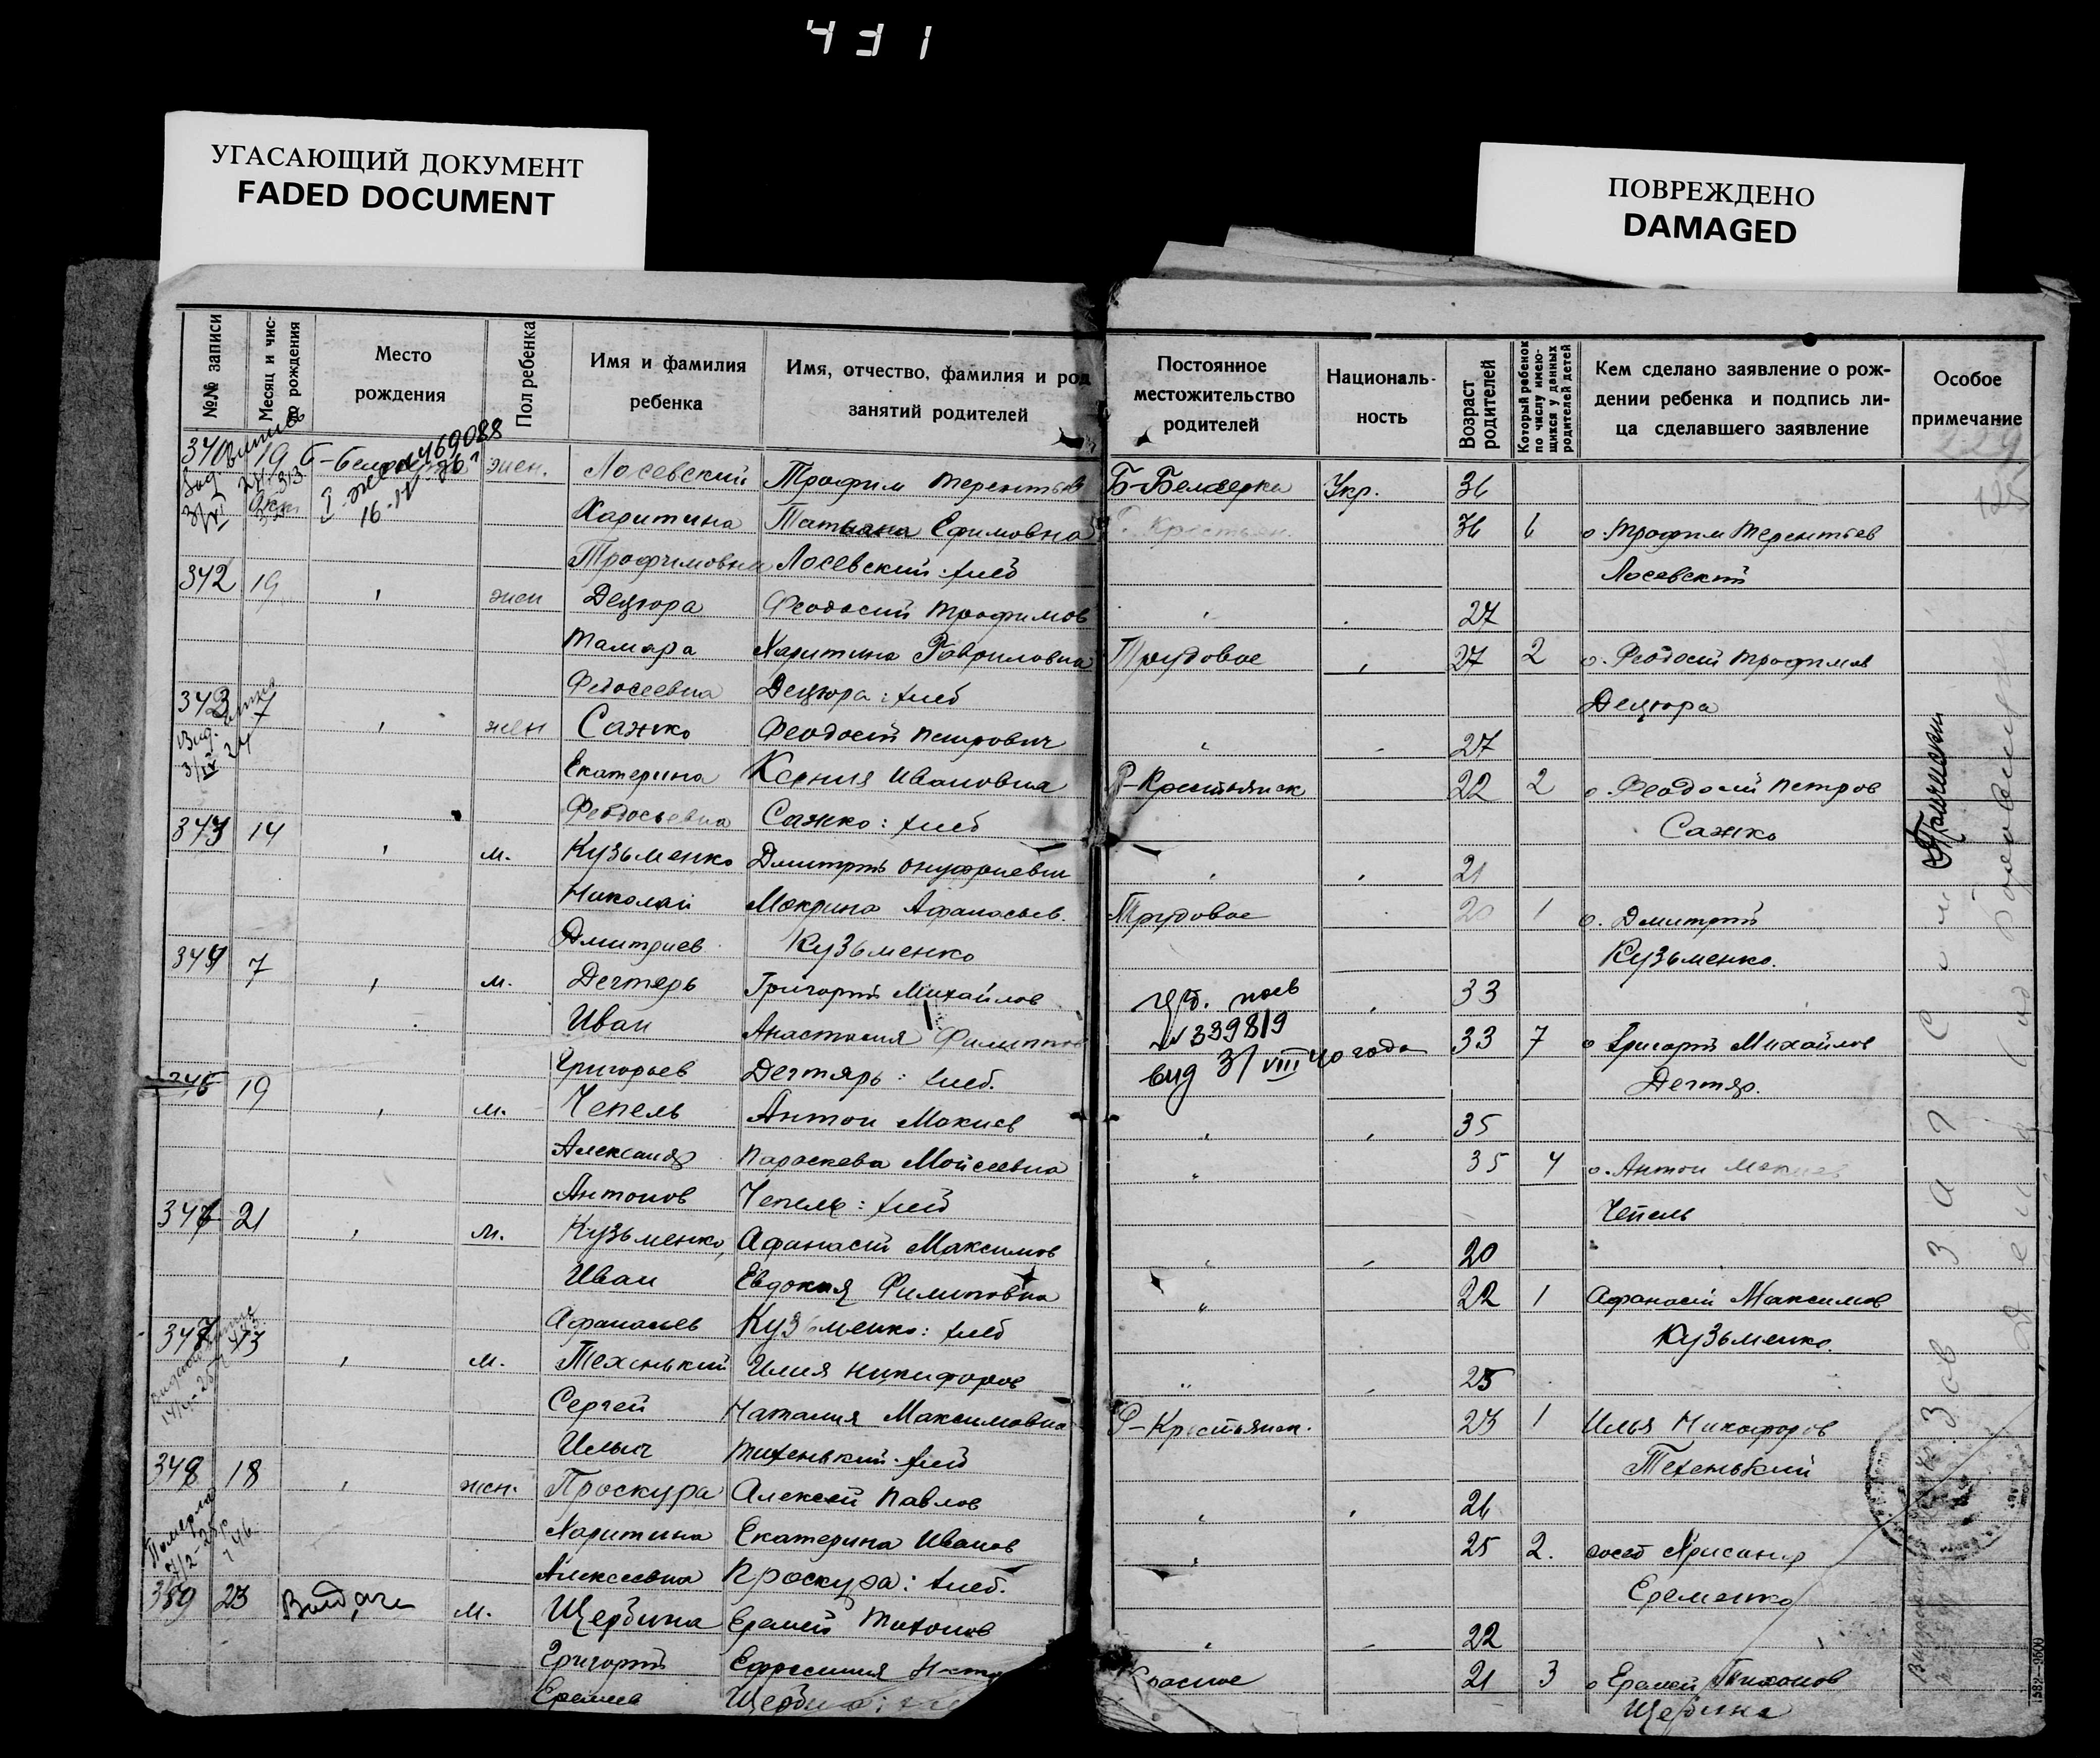 431
УГАСАЮЩИЙ ДОКУМЕНТ
FADED DOCUMENT
ПОВРЕЖДЕНО
DAMAGED
№№ записи
Месяц и чис-
ло рождения
Место
рождения
Пол ребенка
Имя и фамилия
ребенка
Имя, отчество, фамилия и род
занятий родителей
Постоянное
местожительство
родителей
Националь-
ность
Возраст
родителей
Который ребенок
по числу имею-
щихся у данных
родителей детей
Кем сделано заявление о рож-
дении ребенка и подпись ли-
ца сделавшего заявление
Особое
примечание
229
125
340 19 жен. Лосевский Трофим Терентьев Б-Белозерка Укр. 36
469088
16.IV
Харитина Татьяна Ефимовна Р. Крестьян. 36 6 о. Трофим Терентьев
Трофимовна Лосевский: хлеб Лосевский
342 19 " жен Децюра Феодосий Трофимов " " 27
Тамара Харитина Гавриловна Трудовое " 27 2 о. Феодосий Трофимов
Федосеевна Децюра: хлеб Децюра
343 7 " жен Сажко Феодосий Петрович " " 27
Вид.
3/IV 34
Екатерина Ксения Ивановна Р-Крестьянск 22 2 о. Феодосий Петров
Феодосьевна Сажко: хлеб Сажко
343 14 " м. Кузьменко Дмитрий Онуфриевич " " 21
Николай Мокрина Афанасьев. Трудовое 20 1 о. Дмитрий
Дмитриев Кузьменко Кузьменко.
344 7 " м. Дегтярь Григорий Михайлов " 33
№ 339819
выд 31/VIII 40 года
Иван Анастасия Филиппов 33 7 о Григорий Михайлов
Григорьев Дегтярь: хлеб. Дегтяр.
345 19 " м. Чепель Антон Мокиев " " 35
Александр Параскева Мойсеевна " 35 4 о. Антон Мокиев
Антонов Чепель: хлеб Чепель
346 21 " м. Кузьменко, Афанасий Максимов " " 20
Иван Евдокия Филиповна " 22 1 Афанасий Максимов
Афанасьев Кузьменко: хлеб Кузьменко.
347 13 " м. Техенький Илия Никифоров " " 25
Сергей Наталия Максимовна Р-Крестьянск. 23 1 Илья Никифоров
Ильич Тихенький: хлеб Техенький
348 18 " жен. Проскура Алексей Павлов " " 26
Померла
Харитина Екатерина Иванов " 25 2. сосед Хрисанф
Алексеевна Проскура: хлеб. Еременко
349 23 м. Щербина Еремей Тихонов " " 22
Григорий Ефросиния Красное 21 3 о Еремей Тихонов
Еремеев Щербина Щербина
Зав. Загсом
Деловод
1582—9500